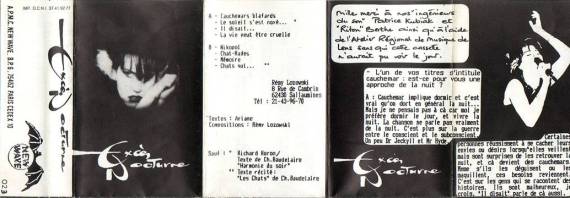 A.P.M.C. NEW WAVE. B.P.6. 75462 PARIS CEDEX 10
NEW WAVE
023
Exces Nocturne
Excès Nocturne
A - Cauchemars blafards
- Le soleil s'est noyé... *
- Il disait...
- La vie peut être cruelle
B - Nikopol
- Chat-Radés
- Mémoire
- Chats mal... **
Rémy Lozowski
8 Rue de Cambrin
62430 Sallaumines
Tél : 21-43-96-70
Textes : Ariane
Compositions : Rémy Lozowski
Sauf : *
Texte de Ch.Baudelaire
"Harmonie du soir"
** Texte récité:
"Les Chats" de Ch.Baudelaire
Mille merci à nos ingénieurs
du son Patrice Kubiak et
"Riton" Berthe ainsi qu'à l'aide
de l'Atelier Régional de Musique de
Lens sans qui cette cassette
n'aurait pu voir le jour.
- L'un de vos titres s'intitule
cauchemar : est-ce pour vous une
approche de la nuit ?
A : Cauchemar implique dormir et c'est
vrai qu'on dort en général la nuit...
Mais je ne pensais pas à cà car moi je
préfère dormir le jour, et vivre la
nuit. La chanson ne parle pas vraiment
de la nuit. C'est plus sur la guerre
entre le conscient et le subconscient.
Un peu Dr Jeckyll et Mr Hyde
Excès Nocturne
Certaines
personnes réussissent à se cacher leurs
envies ou désirs lorsqu'elles veillent
mais sont surprises de les retrouver la
nuit, et cà devient des cauchemars.
Même s'ils les déguisent ou les
maquillent, ces besoins reviennent.
C'est sur les gens qui se racontent des
histoires. Ils sont malheureux, je
crois. "Il disait" parle de çà aussi.